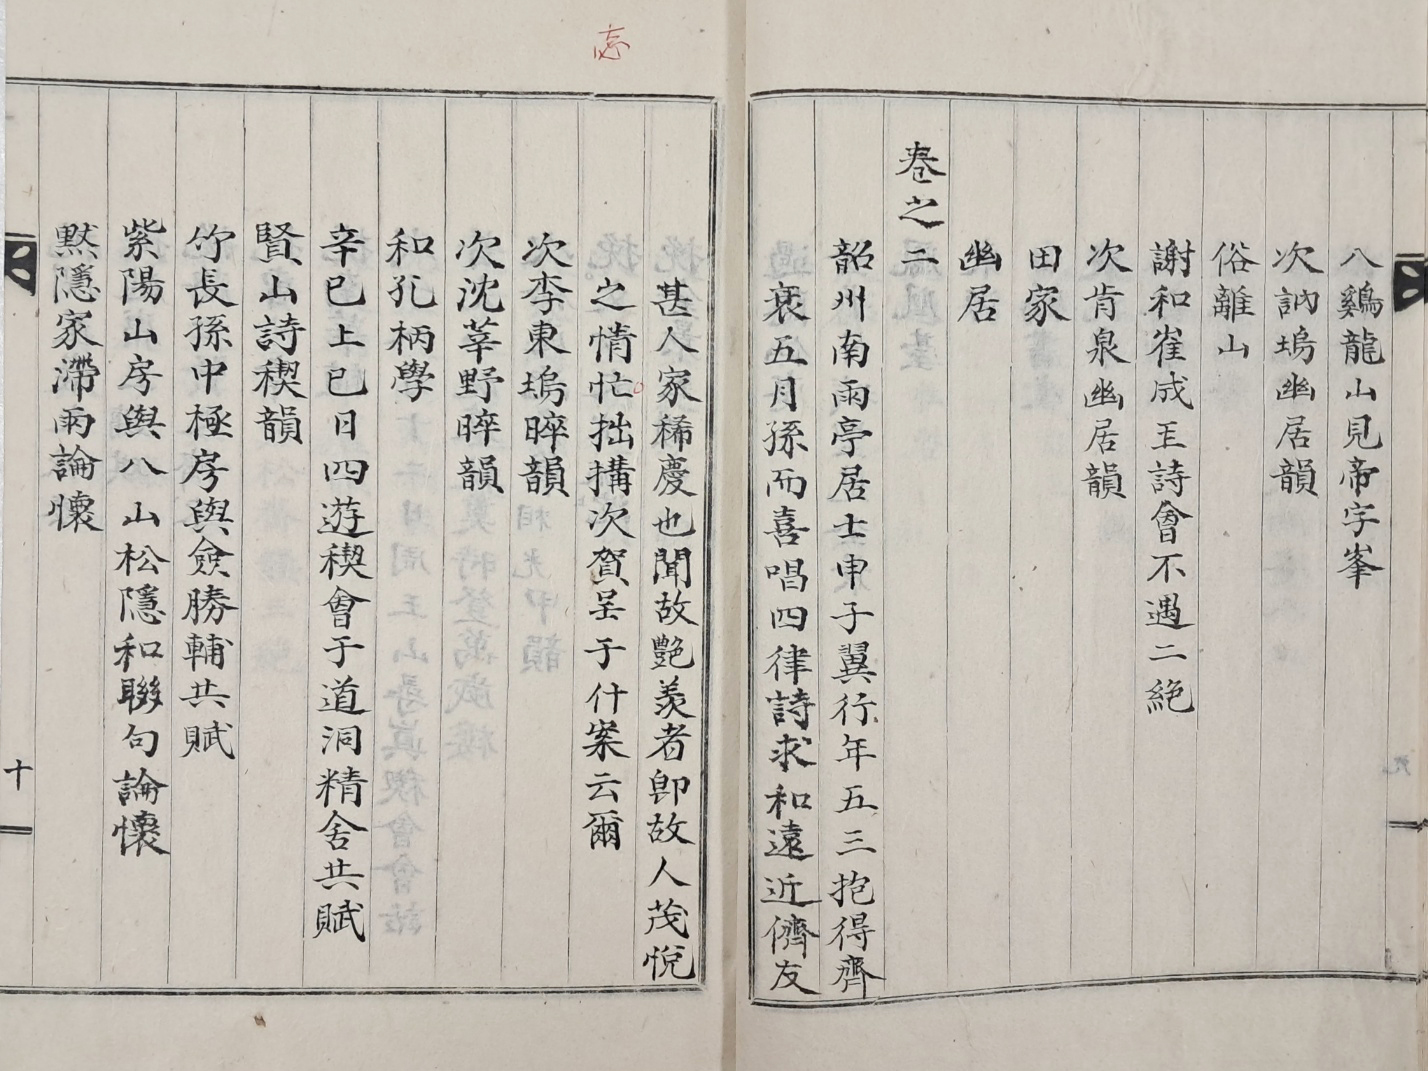 入鷄龍山見帝字峯
次訥塢幽居韻
俗離山
謝和崔成玉詩會不遇二絶
次肯泉幽居韻
田家
幽居
卷之二
韶州南雨亭居士申子翼行年五三抱得齊
衰五月孫而喜唱四律詩求和遠近儕友
甚人家稀慶也聞故艶羡者卽故人茂悅
之情忙拙搆次賀呈于什案云爾
忘
次李東塢晬韻
次沈莘野晬韻
和孔柄學
辛巳上巳日四遊稧會于道洞精舍共賦
賢山詩稧韻
竹長孫中極房與僉勝輔共賦
紫陽山房與八山松隱和聯句論懷
默隱家滯雨論懷
十